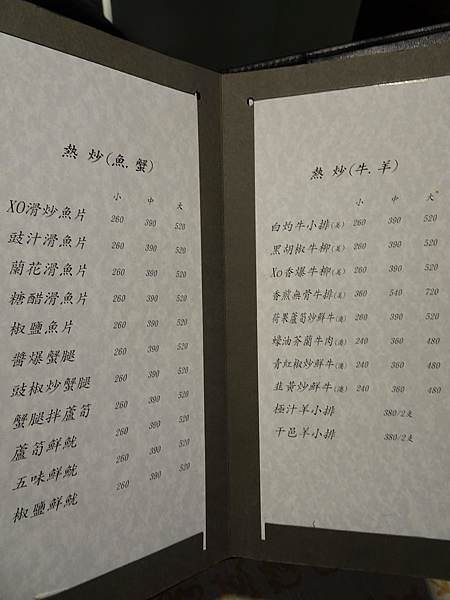 熱 炒(魚.蟹)
小 中 大
XO滑炒魚片 260 390 520
豉汁滑魚片 260 390 520
蘭花滑魚片 260 390 520
糖醋滑魚片 260 390 520
椒鹽魚片 260 390 520
醬爆蟹腿 260 390 520
豉椒炒蟹腿 260 390 520
蟹腿拌蘆筍 260 390 520
蘆筍鮮魷 260 390 520
五味鮮魷 260 390 520
椒鹽鮮魷 260 390 520
熱 炒(牛.羊)
小 中 大
白灼牛小排(美) 260 390 520
黑胡椒牛柳(美) 260 390 520
Xo香爆牛柳(美) 260 390 520
香煎無骨牛排(美) 360 540 720
荷果蘆筍炒鮮牛(澳) 260 390 520
蠔油芥蘭牛肉(澳) 240 360 480
青紅椒炒鮮牛(澳) 240 360 480
韭黃炒鮮牛(澳) 240 360 480
極汁羊小排 380/2支
干邑羊小排 380/2支